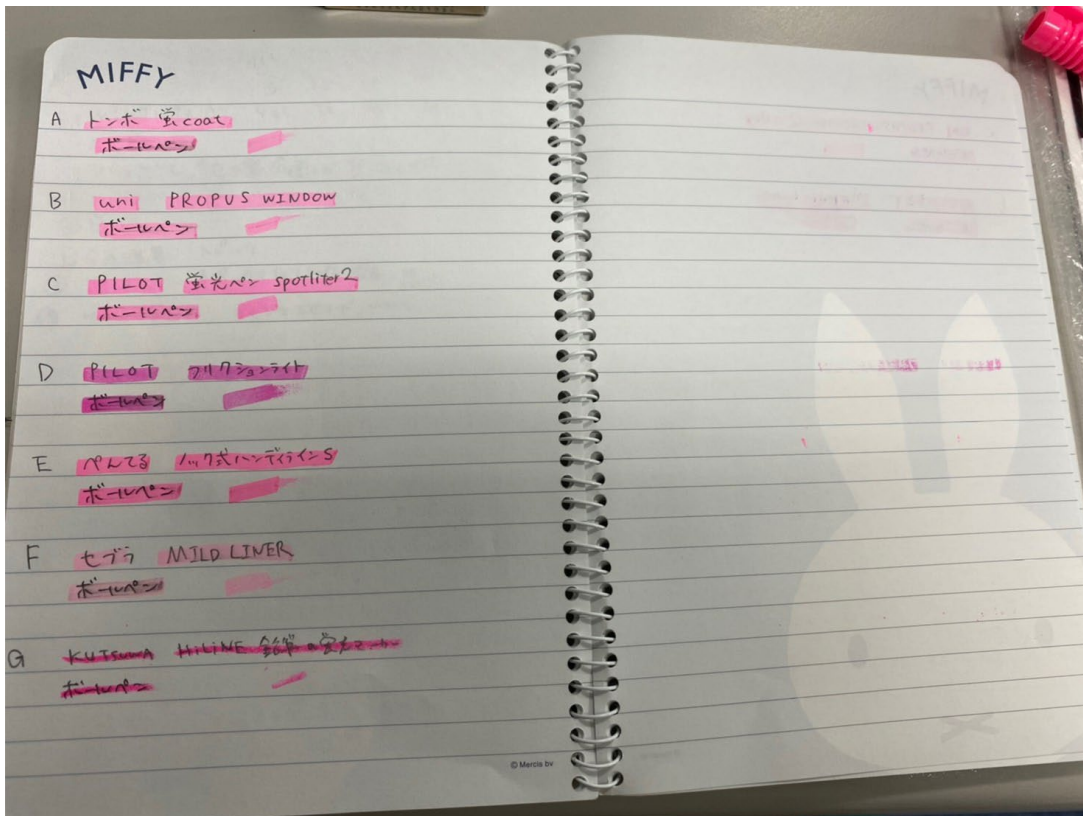 MIFFY
A トンボ 蛍coat
ボールペン
B uni PROPUS WINDOW
ボールペン
C PILOT 蛍光ペン spotliter2
ボールペン
D PILOT フリクションライト
ボールペン
E ぺんてる ノック式ハンディラインS
ボールペン
F セブラ MILD LINER
ボールペン
G KUTSUWA HiLiNE 鉛筆の蛍光マーカー
ボールペン
© Mercis bv